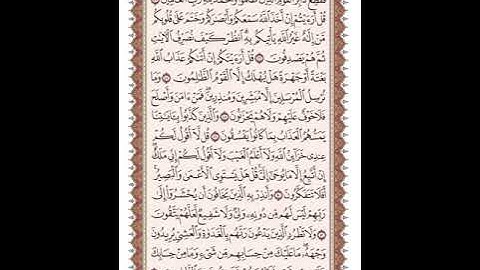 فَقُطِعَ دَابِرُ ٱلْقَوْمِ ٱلَّذِينَ ظَلَمُوا۟ وَٱلْحَمْدُ لِلَّهِ رَبِّ ٱلْعَٰلَمِينَ
قُلْ أَرَءَيْتُمْ إِنْ أَخَذَ ٱللَّهُ سَمْعَكُمْ وَأَبْصَٰرَكُمْ وَخَتَمَ عَلَىٰ قُلُوبِكُم
مَّنْ إِلَٰهٌ غَيْرُ ٱللَّهِ يَأْتِيكُم بِهِ ٱنظُرْ كَيْفَ نُصَرِّفُ ٱلْءَايَٰتِ
ثُمَّ هُمْ يَصْدِفُونَ ۝ قُلْ أَرَءَيْتَكُمْ إِنْ أَتَىٰكُمْ عَذَابُ ٱللَّهِ
بَغْتَةً أَوْ جَهْرَةً هَلْ يُهْلَكُ إِلَّا ٱلْقَوْمُ ٱلظَّٰلِمُونَ ۝ وَمَا
نُرْسِلُ ٱلْمُرْسَلِينَ إِلَّا مُبَشِّرِينَ وَمُنذِرِينَ فَمَنْ ءَامَنَ وَأَصْلَحَ
فَلَا خَوْفٌ عَلَيْهِمْ وَلَا هُمْ يَحْزَنُونَ ۝ وَٱلَّذِينَ كَذَّبُوا۟ بِـَٔايَٰتِنَا
يَمَسُّهُمُ ٱلْعَذَابُ بِمَا كَانُوا۟ يَفْسُقُونَ ۝ قُل لَّآ أَقُولُ لَكُمْ
عِندِى خَزَآئِنُ ٱللَّهِ وَلَآ أَعْلَمُ ٱلْغَيْبَ وَلَآ أَقُولُ لَكُمْ إِنِّى مَلَكٌ
إِنْ أَتَّبِعُ إِلَّا مَا يُوحَىٰٓ إِلَىَّ قُلْ هَلْ يَسْتَوِى ٱلْأَعْمَىٰ وَٱلْبَصِيرُ
أَفَلَا تَتَفَكَّرُونَ ۝ وَأَنذِرْ بِهِ ٱلَّذِينَ يَخَافُونَ أَن يُحْشَرُوٓا۟ إِلَىٰ
رَبِّهِمْ لَيْسَ لَهُم مِّن دُونِهِۦ وَلِىٌّ وَلَا شَفِيعٌ لَّعَلَّهُمْ يَتَّقُونَ
۝ وَلَا تَطْرُدِ ٱلَّذِينَ يَدْعُونَ رَبَّهُم بِٱلْغَدَوٰةِ وَٱلْعَشِىِّ يُرِيدُونَ
وَجْهَهُۥ مَا عَلَيْكَ مِنْ حِسَابِهِم مِّن شَىْءٍ وَمَا مِنْ حِسَابِكَ